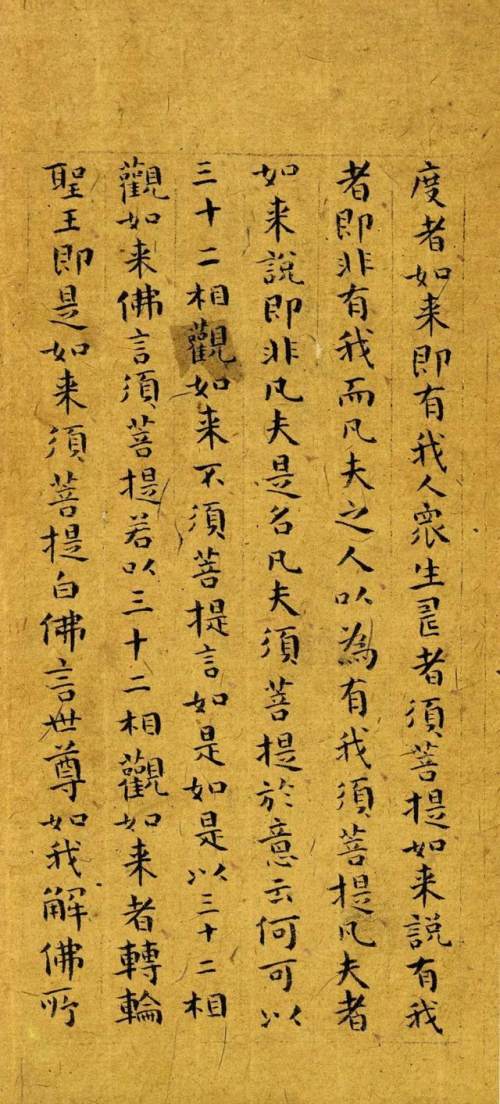 度者如来即有我人衆生壽者須菩提如来說有我
者即非有我而凡夫之人以為有我須菩提凡夫者
如来說即非凡夫是名凡夫須菩提於意云何可以
三十二相觀如来不須菩提言如是如是以三十二相
觀如来佛言須菩提若以三十二相觀如来者轉輪
聖王即是如来須菩提白佛言世尊如我解佛所